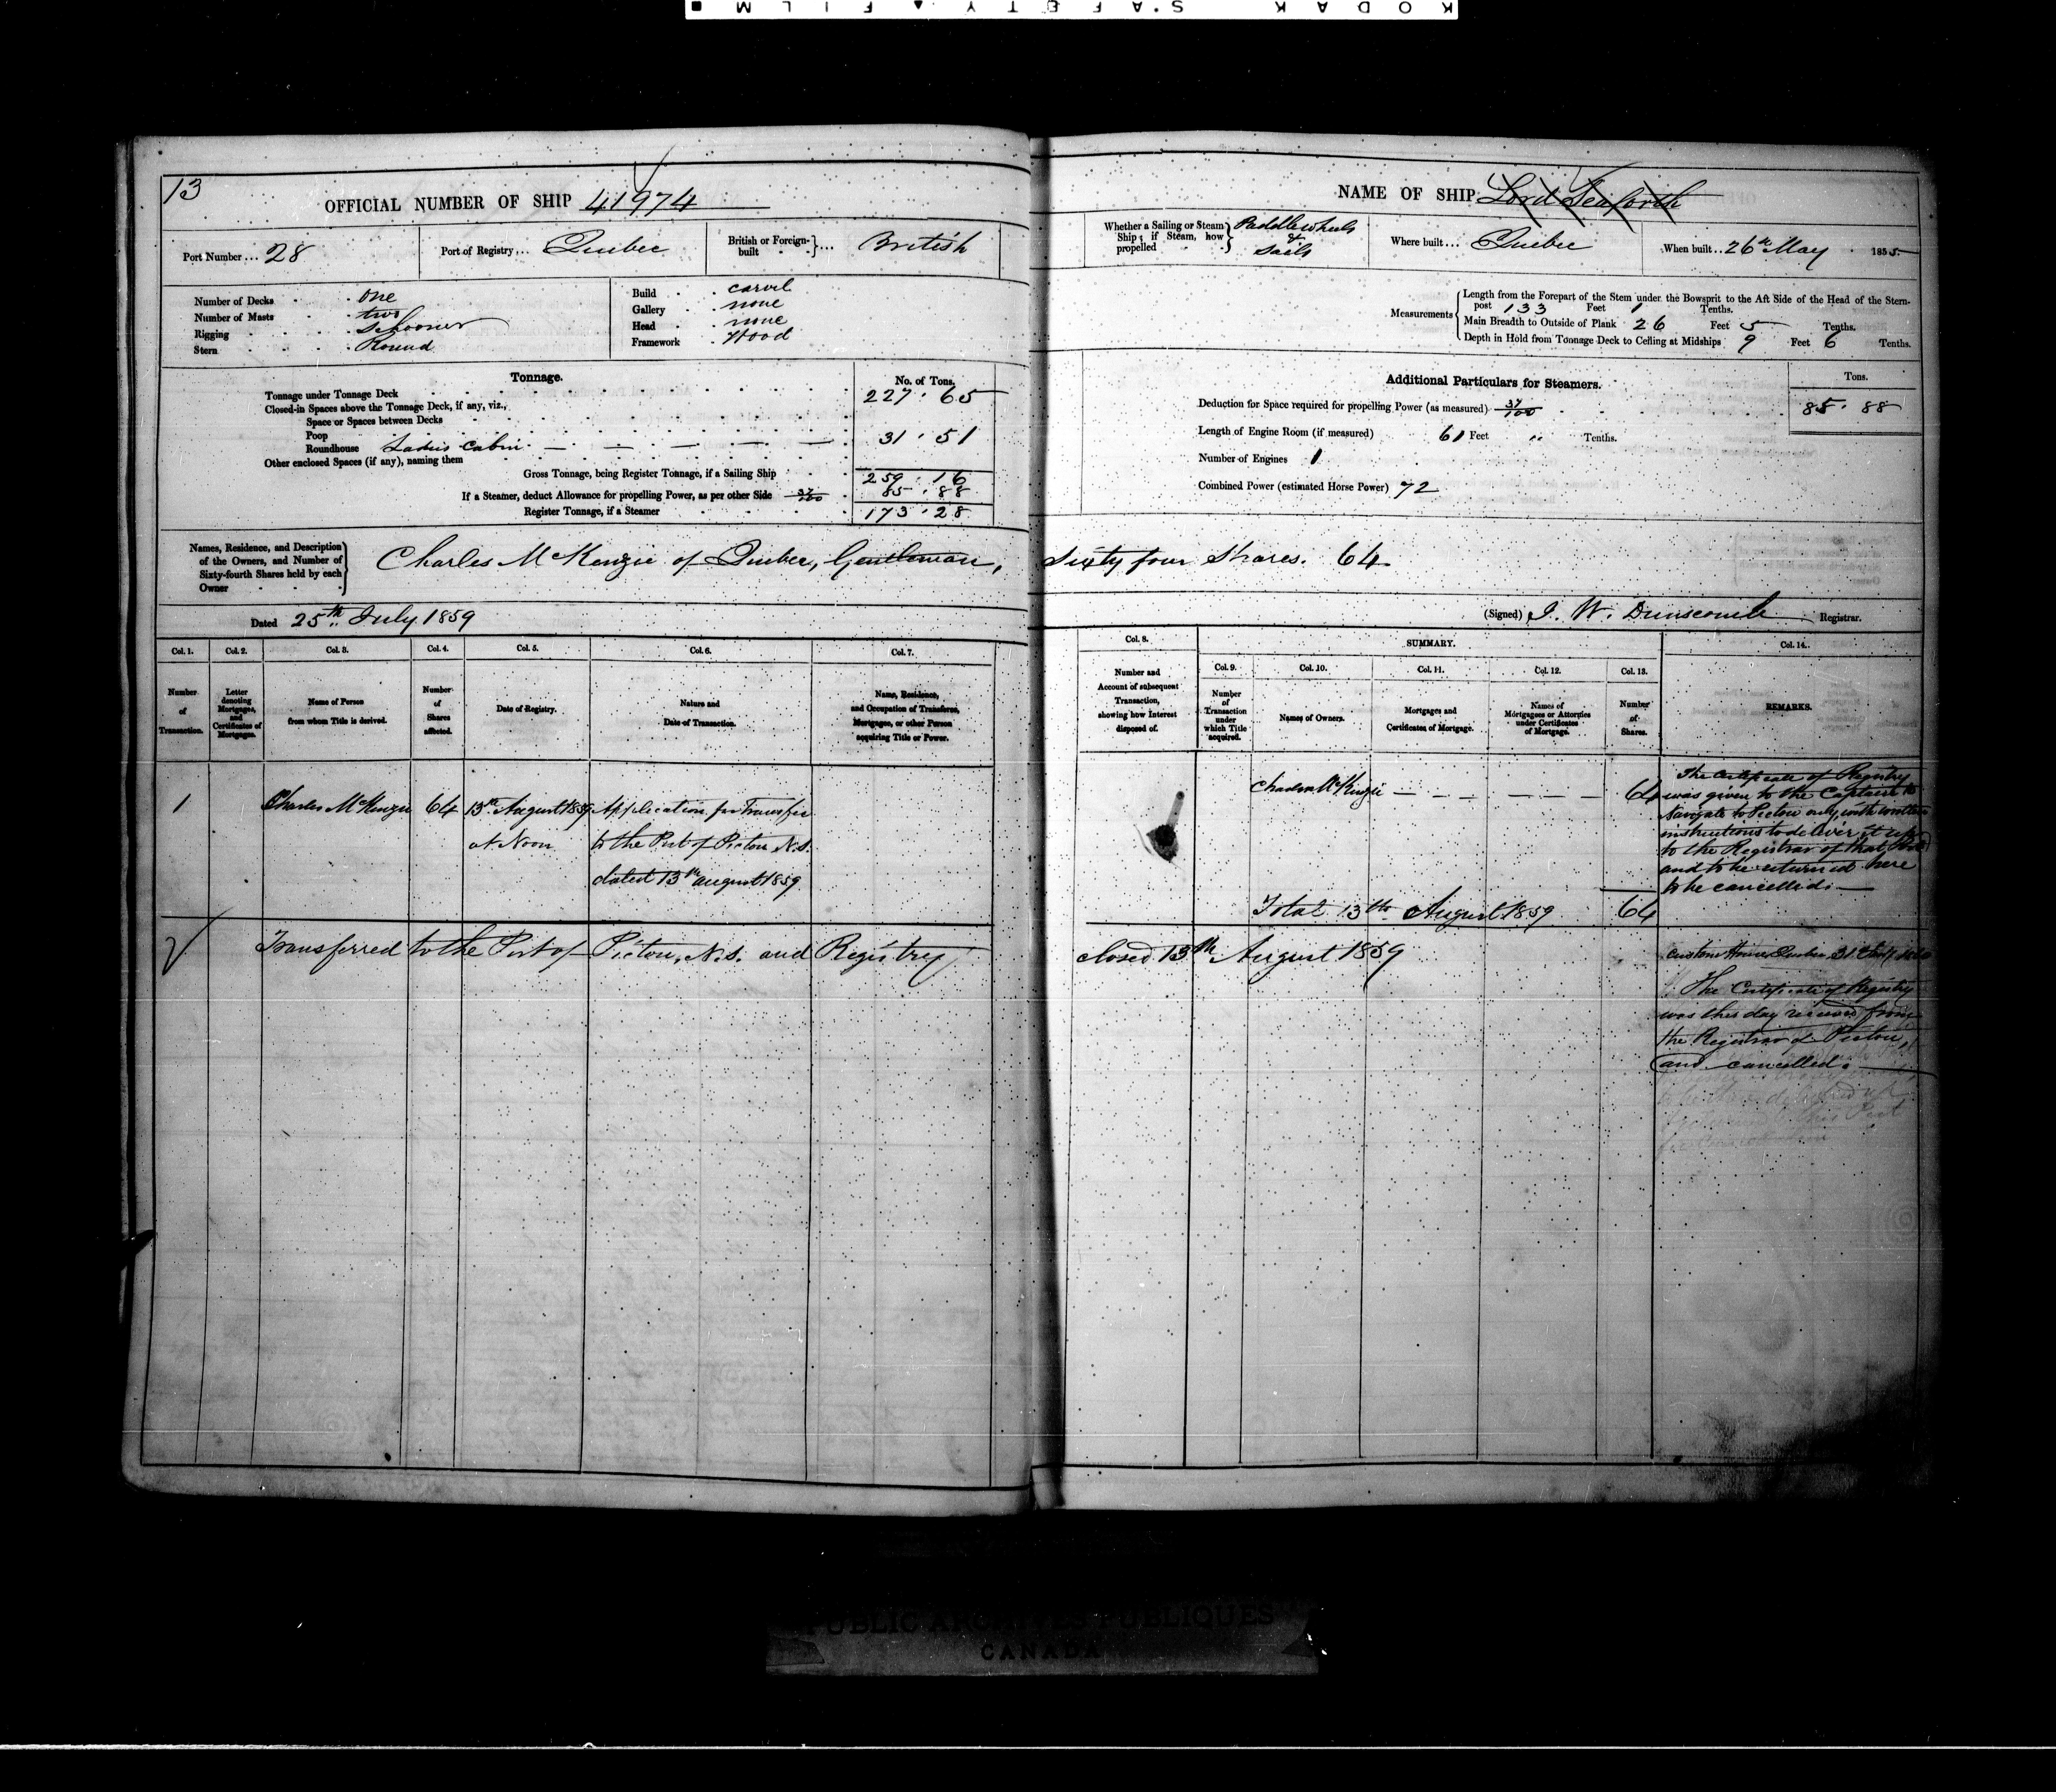 KODAK SAFETY FILM
13
OFFICIAL NUMBER OF SHIP 41974
Port Number ... 28
Port of Registry ... Quebec
British or Foreign-built ... British
Number of Decks one
Number of Masts two
Rigging Schooner
Stern Round
Build carvel
Gallery none
Head none
Framework Wood
Tonnage.
No. of Tons.
Tonnage under Tonnage Deck 227 . 65
Closed-in Spaces above the Tonnage Deck, if any, viz.,
Space or Spaces between Decks
Poop
Roundhouse Ladies Cabin 31 . 51
Other enclosed Spaces (if any), naming them
Gross Tonnage, being Register Tonnage, if a Sailing Ship 259 . 16
If a Steamer, deduct Allowance for propelling Power, as per other Side 37/100 85 . 88
Register Tonnage, if a Steamer 173 . 28
Names, Residence, and Description
of the Owners, and Number of
Sixty-fourth Shares held by each
Owner
Charles McKenzie of Quebec, Gentleman,
Dated 25th July 1859
Col. 1. Col. 2. Col. 3. Col. 4. Col. 5. Col. 6. Col. 7.
Number of Transaction.
Letter denoting Mortgages, and Certificates of Mortgages.
Name of Person from whom Title is derived.
Number of Shares affected.
Date of Registry.
Nature and Date of Transaction.
Name, Residence, and Occupation of Transferee, Mortgagee, or other Person acquiring Title or Power.
1 Charles McKenzie 64 13th August 1859 Application for Transfer
at Noon to the Port of Pictou N.S.
dated 13th August 1859
Transferred to the Port of Pictou, N.S. and Registry
NAME OF SHIP Lord Seaforth
Whether a Sailing or Steam Ship; if Steam, how propelled Paddlewheels & Sails
Where built ... Quebec
When built ... 26th May 1855
Measurements
Length from the Forepart of the Stem under the Bowsprit to the Aft Side of the Head of the Stern-
post 133 Feet 1 Tenths.
Main Breadth to Outside of Plank 26 Feet 5 Tenths.
Depth in Hold from Tonnage Deck to Ceiling at Midships 9 Feet 6 Tenths.
Additional Particulars for Steamers.
Tons.
Deduction for Space required for propelling Power (as measured) 37/100 85 . 88
Length of Engine Room (if measured) 61 Feet " Tenths.
Number of Engines 1
Combined Power (estimated Horse Power) 72
Sixty four Shares. 64
(Signed) J. W. Dunscomb Registrar.
Col. 8.
SUMMARY.
Col. 9. Col. 10. Col. 11. Col. 12. Col. 13. Col. 14.
Number and Account of subsequent Transaction, showing how Interest disposed of.
Number of Transaction under which Title acquired.
Names of Owners.
Mortgages and Certificates of Mortgage.
Names of Mortgagees or Attornies under Certificates of Mortgage.
Number of Shares.
REMARKS.
Charles McKenzie 64
The Certificate of Registry
was given to the Captain to
Navigate to Pictou only, with written
instructions to deliver it up
to the Registrar of that Port
and to be returned here
to be cancelled.
Total 13th August 1859 64
closed 13th August 1859
Custom House Quebec 31
The Certificate of Registry
was this day received from
the Registrar of Pictou,
and cancelled.
PUBLIC ARCHIVES PUBLIQUES
CANADA